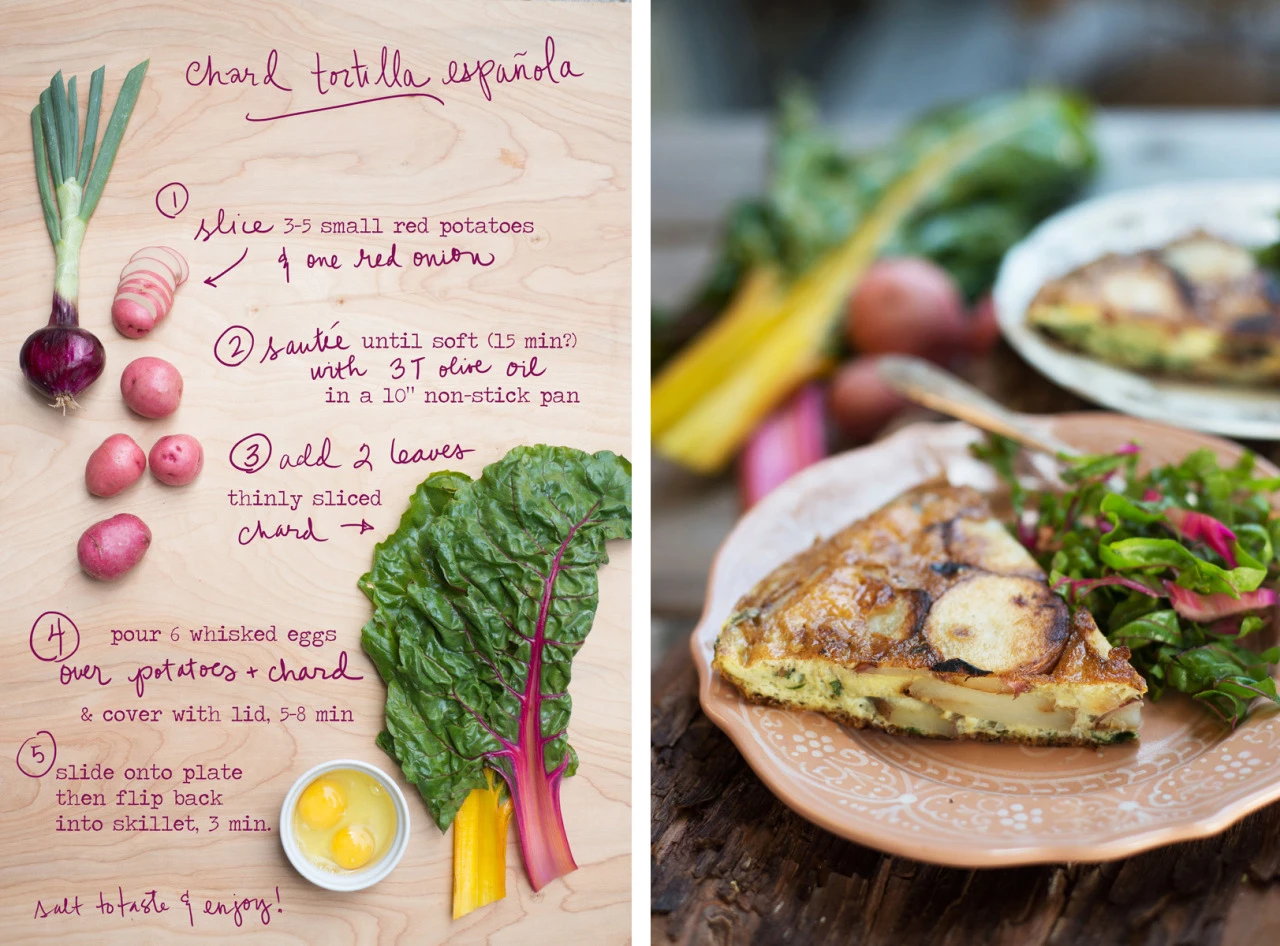 chard tortilla española
1
slice 3-5 small red potatoes
& one red onion
2 sautée until soft (15 min?)
with 3T olive oil
in a 10" non-stick pan
3 add 2 leaves
thinly sliced
chard →
4 pour 6 whisked eggs
over potatoes + chard
& cover with lid, 5-8 min
5
slide onto plate
then flip back
into skillet, 3 min.
salt to taste & enjoy!